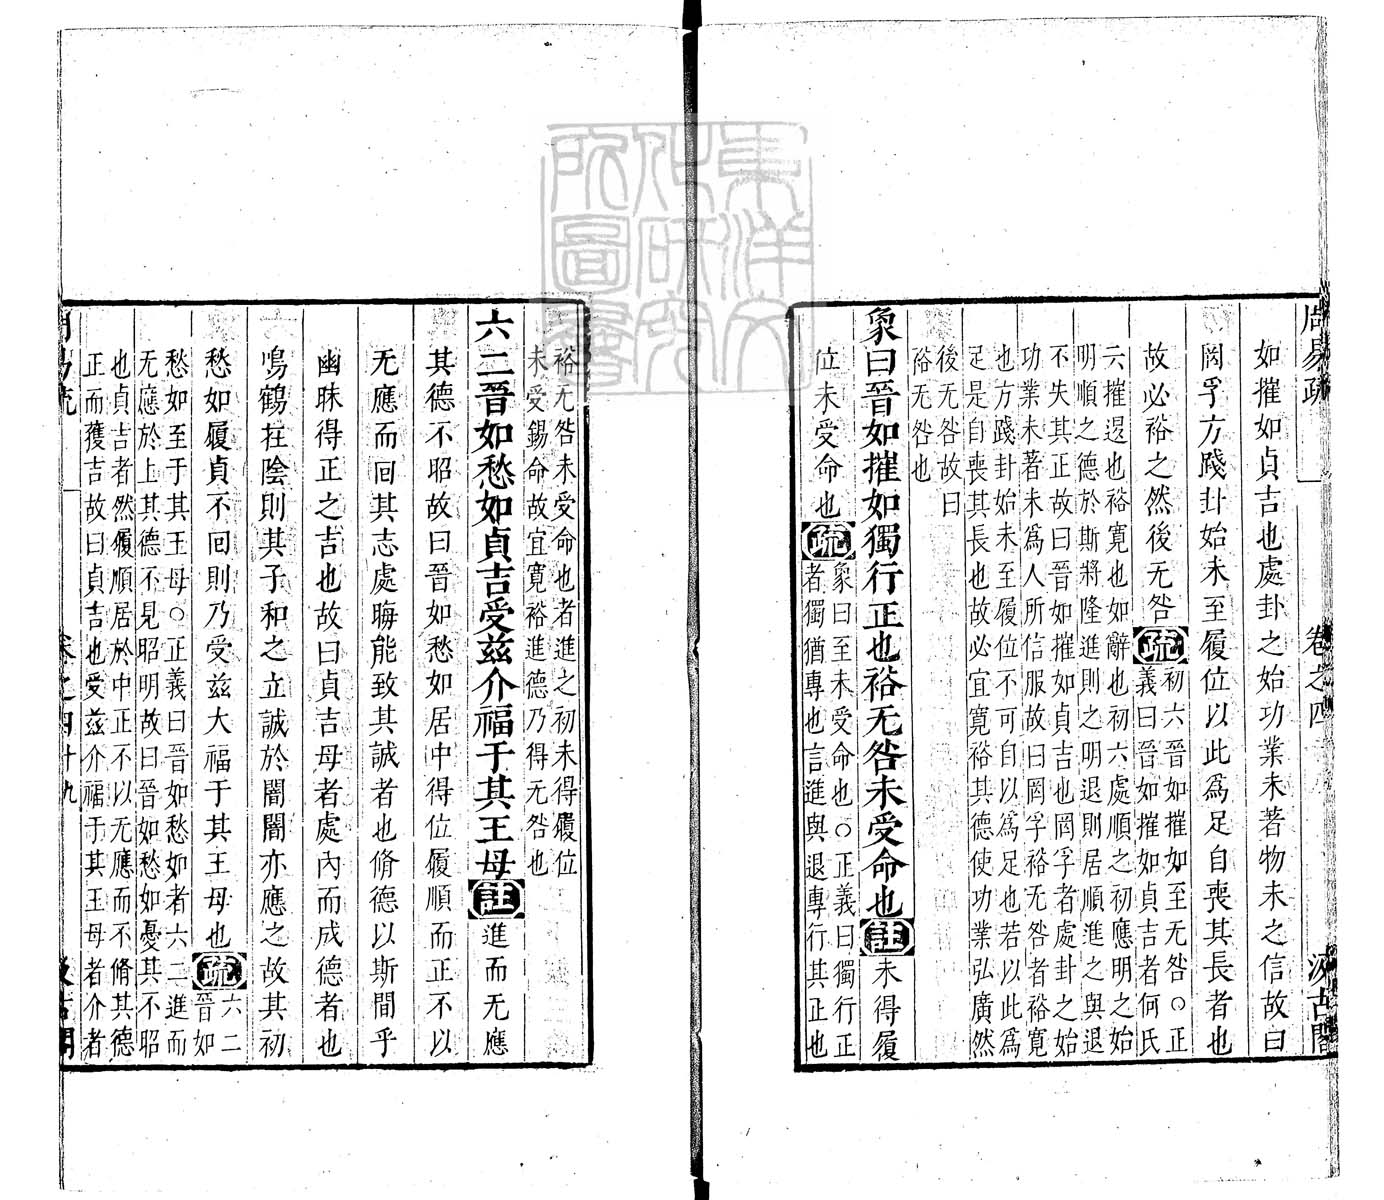 周易疏 卷之四 汲古閣
如摧如貞吉也處卦之始功業未著物未之信故曰
罔孚方踐卦始未至履位以此爲足自喪其長者也
故必裕之然後无咎疏初六晉如摧如至无咎○正
義曰晉如摧如貞吉者何氏
六摧退也裕寛也如辭也初六處順之初應明之始
明順之德於斯將隆進則之明退則居順進之與退
不失其正故曰晉如摧如貞吉也罔孚者處卦之始
功業未著未爲人所信服故曰罔孚裕无咎者裕寛
也方踐卦始未至履位不可自以爲足也若以此爲
足是自喪其長也故必宜寛裕其德使功業弘廣然
後无咎故曰
裕无咎也
象曰晉如摧如獨行正也裕无咎未受命也註未得履
位未受命也疏象曰至未受命也○正義曰獨行正
者獨猶專也言進與退專行其正也
裕无咎未受命也者進之初未得履位
未受錫命故宜寛裕進德乃得无咎也
六二晉如愁如貞吉受茲介福于其王母註進而无應
其德不昭故曰晉如愁如居中得位履順而正不以
无應而回其志處晦能致其誠者也脩德以斯間乎
幽昧得正之吉也故曰貞吉母者處內而成德者也
鳴鶴在陰則其子和之立誠於闇闇亦應之故其初
愁如履貞不回則乃受茲大福于其王母也疏六二
晉如
愁如至于其王母○正義曰晉如愁如者六二進而
无應於上其德不見昭明故曰晉如愁如憂其不昭
也貞吉者然履順居於中正不以无應而不脩其德
正而獲吉故曰貞吉也受茲介福于其王母者介者
周易疏 卷之四 十九 汲古閣
東洋文化研究所圖書